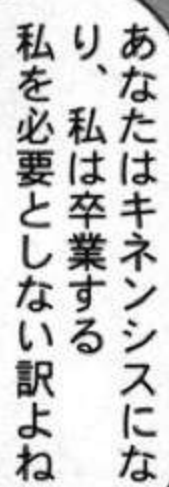 あなたはキネンシスにな
り、私は卒業する
私を必要としない訳よね